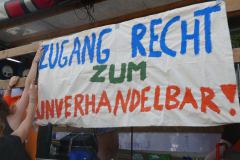 ZUGANG RECHT
ZUM
UNVERHANDELBAR!